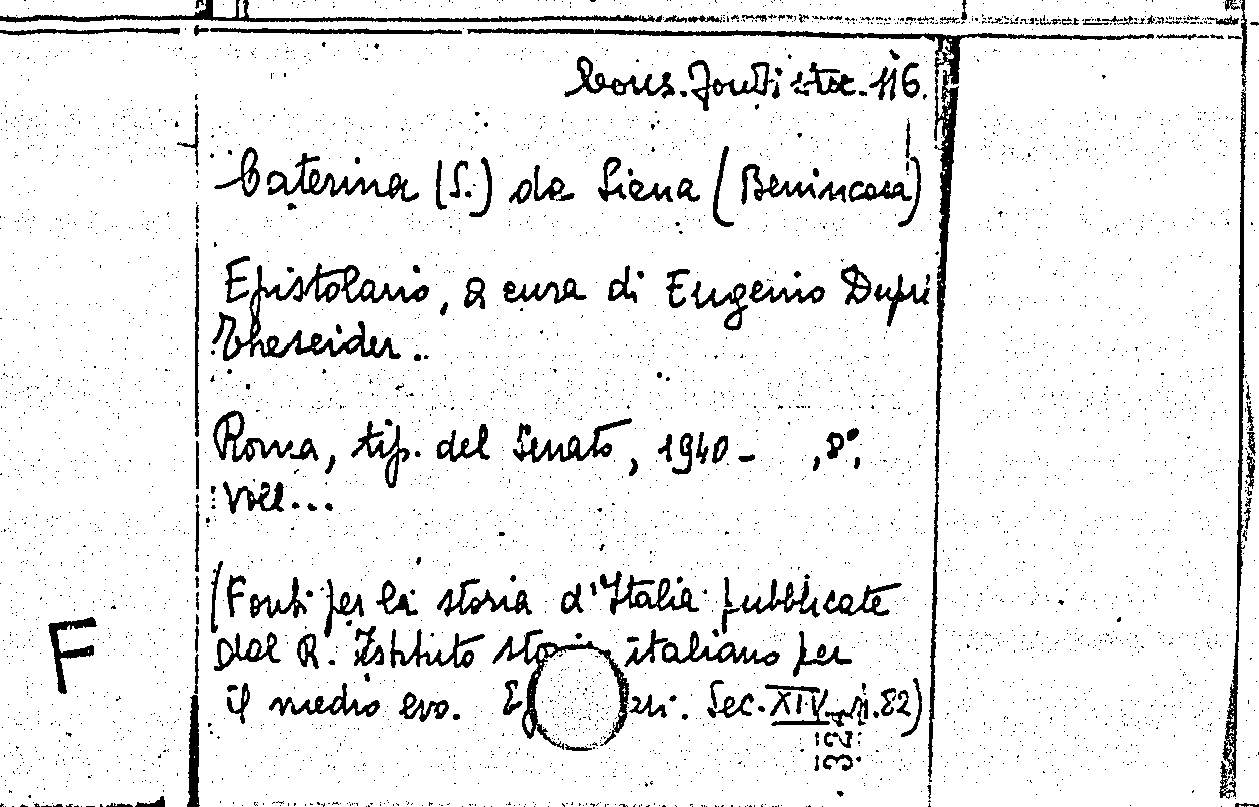 Cons. Fonti stor. 116.
Caterina (S.) da Siena (Benincasa)
Epistolario, a cura di Eugenio Dupré
Theseider..
Roma, tip. del Senato, 1940 - , 8°,
Voll...
(Fonti per la storia d'Italia pubblicate
dal R. Istituto italiano per
il medio evo. Sec. XIV, n. 82)
F